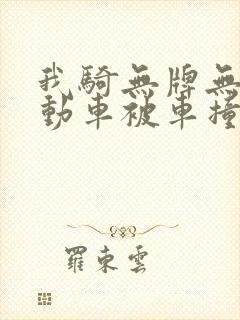 我騎無牌無
動車被車撞
羅東雲